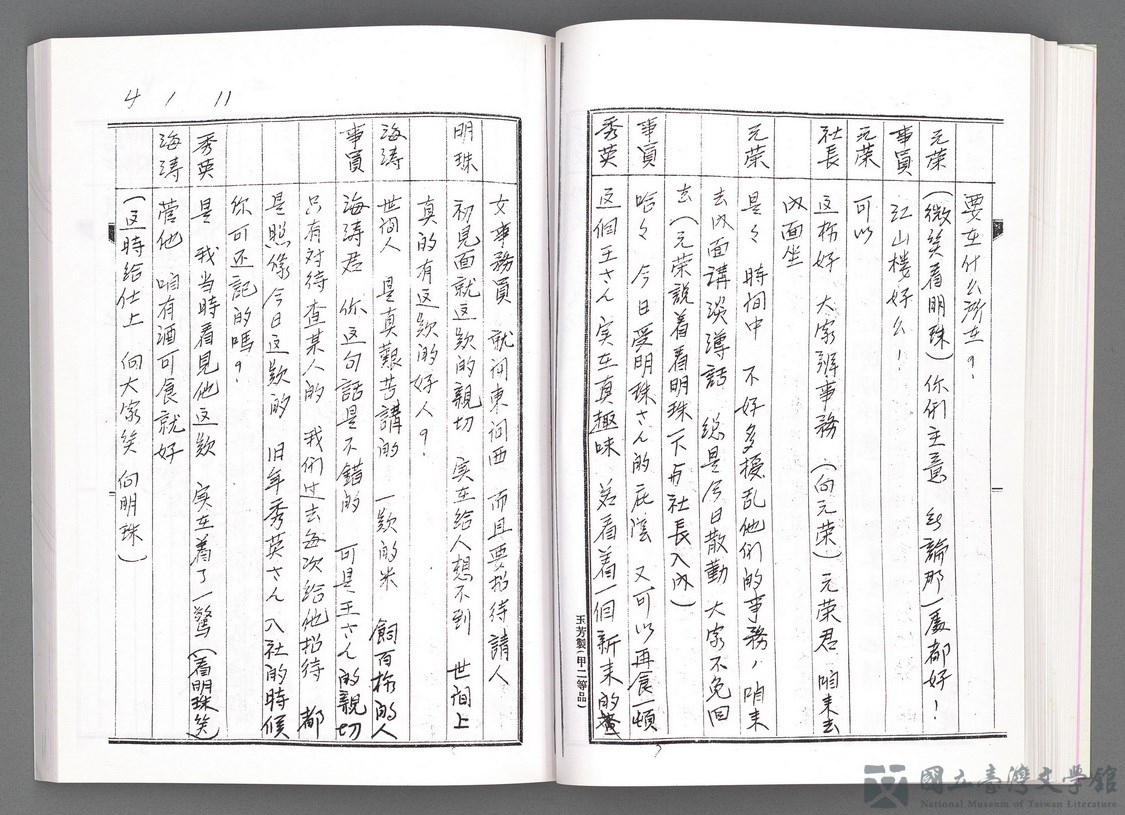 要在什么所在?
元荣 (微笑看明珠) 你们主意 勿論那一處都好!
事員 江山楼好么!
元荣 可以
社長 这柡好 大家辦事務 (向元荣) 元荣君 咱来去
内面坐
元荣 是々 時间中 不好多擾乱他们的事務, 咱来
去内面講淡薄話 總是今日散勤 大家不免回
去 (元荣説着看明珠一下与社長入内)
事員 哈々 今日受明珠さん的庇蔭 又可以再食一頓
秀英 这個王さん 实在真趣味 若看着一個新来的
玉芳製(甲二等品)
女事務員 就问東问西 而且要招待請人
明珠 初見面就这欵的親切 实在给人想不到 世间上
真的有这欵的好人?
海涛 世间人 是真艱苦講的 一欵的米 飼百柡的人
事員 海涛君 你这句話是不錯的 可是王さん的親切
只有対待查某人的 我们过去每次给他招待 都
是照像今日这欵的 旧年秀英さん入社的時候
你可还記的嗎?
秀英 是 我当時看見他这欵 实在着了一驚 (看明珠笑)
海涛 管他 咱有酒可食就好
(这時给仕上 向大家笑 向明珠)
4 1 11
國立臺灣文學館
National Museum of Taiwan Literature